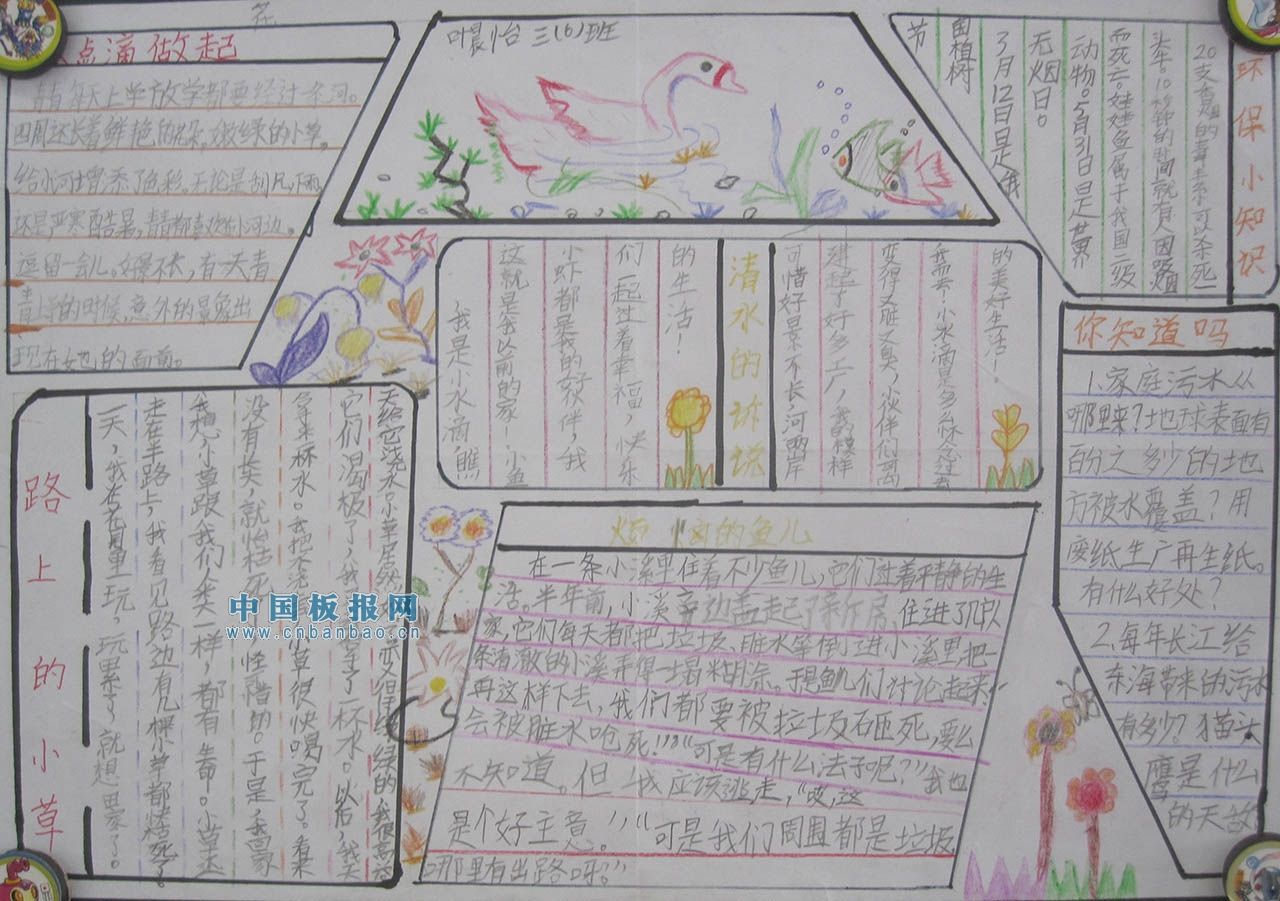 点滴做起
青青每天上学放学都要经过一条河。
四周还长着鲜艳的花朵。嫩绿的小草。
给小河增添了色彩。无论是刮风下雨,
还是严寒酷暑,青青都喜欢到小河边。
逗留一会儿。好景不长,有一天青
青上学的时候,意外的景象出
现在她的面前。
晨怡 三(6)班
环保小知识
20支香烟的毒素可以杀死一
头牛。10秒钟的时间就有人因吸烟
而死亡。娃娃鱼属于我国二级
动物。5月31日是世界
无烟日。
3月12日是我
国植树
节
清水的诉说
我是小水滴,瞧
这就是我以前的家,小鱼
小虾都是我的好伙伴,我
们一起过着幸福,快乐
的生活!
可惜好景不长,河两岸
建起了好多工厂,
变得又脏又臭,小伙伴们离
我而去!小水滴是多么怀念过去
的美好生活!
你知道吗
1.家庭污水从
哪里来?地球表面有
百分之多少的地
方被水覆盖?用
废纸生产再生纸。
有什么好处?
2.每年长江给
东海带来的污水
有多少?猫头
鹰是什么
的天敌
路上的小草
一天,我在花园里玩,玩累了就想要
走在半路上,我看见路边有几棵小草都枯死了。
我想,小草跟我们人类一样,都有生命。小草还
没有长大,就怕枯死 怪可惜的。于是,我回家
拿来一杯水。我把水浇 小草很快喝完了。看来
它们渴极了,我 拿了一杯水。以后,我天
天给它浇水。小草居然 绿的
烦恼的鱼儿
在一条小溪里住着不少鱼儿,它们过着平静的生
活。半年前,小溪旁边盖起了新红房,住进了几户人
家,它们每天都把垃圾、脏水等倒进小溪里,把一
条清澈的小溪弄得一塌糊涂。于是鱼儿们讨论起来:
再这样下去,我们都要被垃圾砸死,要么
会被脏水呛死!”“可是有什么法子呢?”“我也
不知道。但我应该逃走,”“哎,这
是个好主意。”“可是我们周围都是垃圾
哪里有出路呀。”
中国板报网
www.cnbanbao.cn